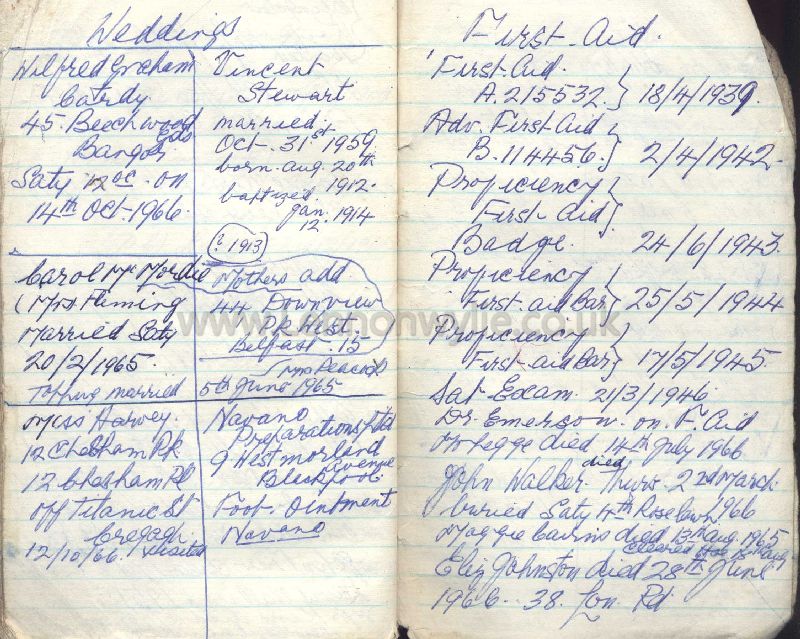 Weddings
Wilfred Graham
Cardy
45. Beechwood
Gds
Bangor
Saty 12 oc. on
14th Oct-1966.
Vincent
Stewart
married.
Oct. 31st 1959.
born. aug. 20th
1912.
baptized.
Jan. 1914
12.
? 1913
Carol Mc Mordie
(Mrs Fleming
Married Saty
20/2/1965.
Topping married
5th June 1965
Mothers add.
44 Downview
Pk West
Belfast-15
Mrs Peacock
Miss Harvey.
12 Chesham Pk
12 Chesham Pl
off Titanic St
Cregagh.
12/10/66. visited
Navano
Preparations Ltd
9 Westmorland
avenue
Blackpool.
Foot-Ointment
Navano
First-Aid.
First-Aid.
A.215532.} 18/4/1939.
Adv. First Aid
B.114456.} 2/4/1942.
Proficiency
First-Aid}
Badge. 24/6/1943.
Proficiency
First-aid Bar} 25/5/1944
Proficiency
First-aid Bar} 17/5/1945.
Sat-Exam. 21/3/1946.
Dr. Emerson. on. F. Aid
died 14th July 1966
John Walker died Thurs. 2nd March
buried Saty 4th Roselawn 1966
Maggie Cairns died 13th aug. 1965
15th aug
Eliz Johnston died 28th June
1966. 38. Lon. Rd.
www.Lennonwylie.co.uk